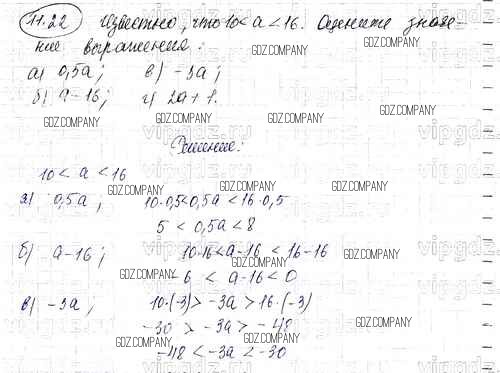 11.22 Известно, что 10 < a < 16. Оцените значе-
ние выражения:
а) 0,5a; в) -3a;
б) a-16; г) 2a+1.
Решение:
10 < a < 16
а) 0,5a; 10·0,5<0,5a<16·0,5
5 < 0,5a < 8
б) a-16; 10-16<a-16 < 16-16
-6 < a-16 < 0
в) -3a; 10·(-3)> -3a >16·(-3)
-30 > -3a > -48
-48 < -3a < -30
GDZ.COMPANY
vipgdz.ru